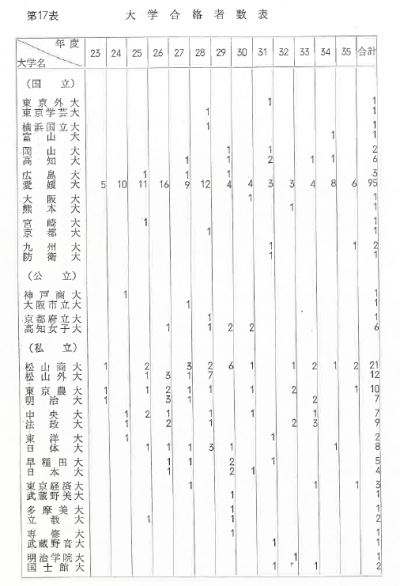 第17表 大学合格者数表
年度 23 24 25 26 27 28 29 30 31 32 33 34 35 合計
大学名
(国立)
東京外大 1 1
東京学芸大 1 1
横浜国立大 1 1
富山大 1 1
岡山大 1 1 2
高知大 1 1 2 1 1 6
広島大 1 1 1 3
愛媛大 5 10 11 16 9 12 4 4 3 3 4 8 6 95
大阪大 1 1
熊本大 1 1
宮崎大 1 1
京都大 1 1
九州大 1 1 2
防衛大 1 1
(公立)
神戸商大 1 1
大阪市立大 1 1
京都府立大 1 1
高知女子大 1 1 2 2 6
(私立)
松山商大 1 2 3 2 6 1 1 2 1 2 21
松山外大 1 3 1 7 12
東京農大 1 1 2 1 1 1 2 1 10
明治大 1 3 1 2 7
中央大 1 2 1 1 1 1 7
法政大 1 2 1 2 3 9
東洋大 1 1 2
日体大 1 1 1 3 1 1 8
早稲田大 1 1 2 1 5
日本大 1 2 1 4
東京経済大 1 1 1 3
武蔵野美大 1 1
多摩美大 1 1
立教大 1 1 2
専修大 1 1
武蔵野音大 1 1
明治学院大 1 1
国士館大 1 1 2